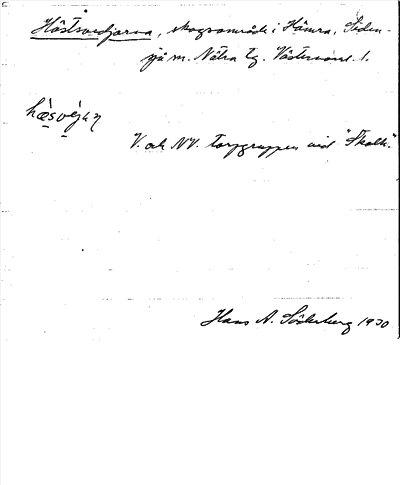 Höstsvedjorna, skogsområde i Hämra, Siden-
sjö sn. Nätra tg. Västernorrl. l.
hæsvéjɑɳ
V. och NV. torpgruppen vid "Skall".
Hans A. Söderberg 1930